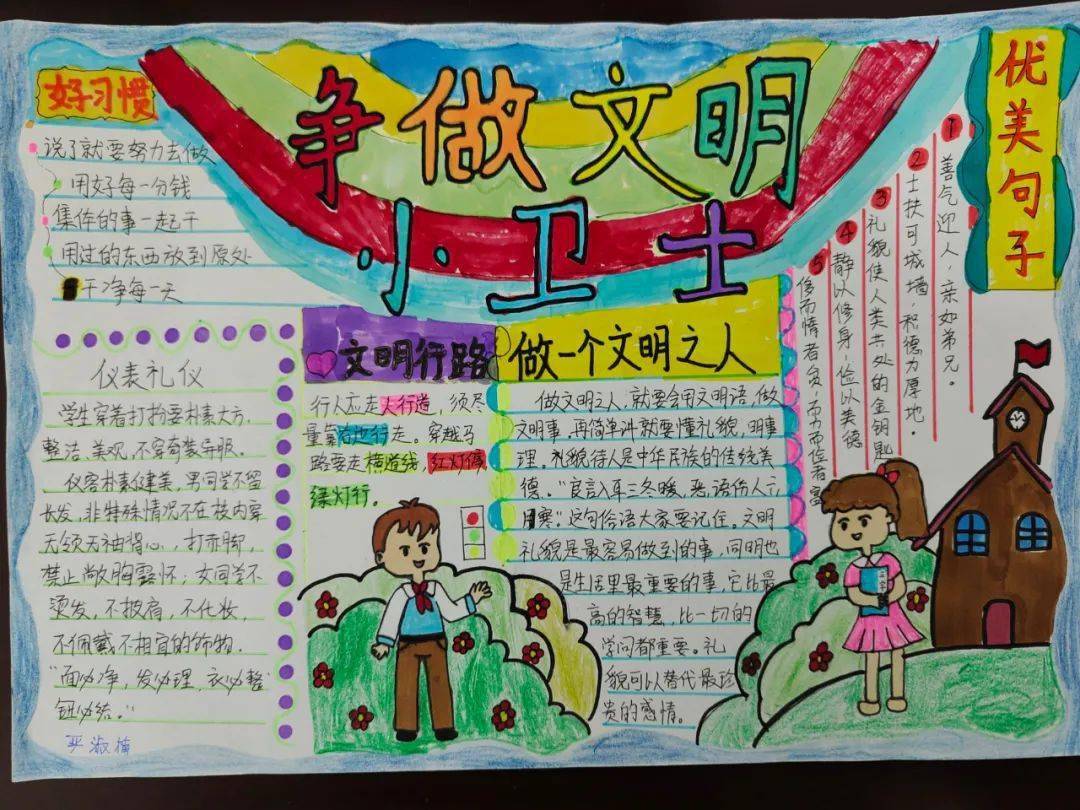 争做文明
小卫士
好习惯
说了就要努力去做
用好每一分钱
集体的事一起干
用过的东西放到原处
干净每一天
仪表礼仪
学生穿着打扮要朴素大方,
整洁、美观,不穿奇装异服。
仪容朴素健美,男同学不留
长发,非特殊情况不在校内穿
无领无袖背心,打赤脚,
禁止敞胸露怀;女同学不
烫发,不披肩,不化妆,
不佩戴不相宜的饰物.
"面必净,发必理,衣必整
钮必结。"
严淑楠
文明行路
行人应走人行道,须尽
量靠右边行走。穿越马
路要走横道线,红灯停
绿灯行。
做一个文明之人
做文明之人,就要会用文明语,做
文明事,再简单讲就要懂礼貌,明事
理。礼貌待人是中华民族的传统美
德。"良言入耳三冬暖,恶语伤人六
月寒"。这句俗语大家要记住。文明
礼貌是最容易做到的事,同明也
是生活里最重要的事,它比最
高的智慧,比一切的
学问都重要。礼
貌可以替代最珍
贵的感情。
优美句子
1 善气迎人,亲如弟兄。
2 士扶可城墙,积德为厚地。
3 礼貌使人类共处的金钥匙
4 静以修身,俭以美德
5 侈而惰者贫,而